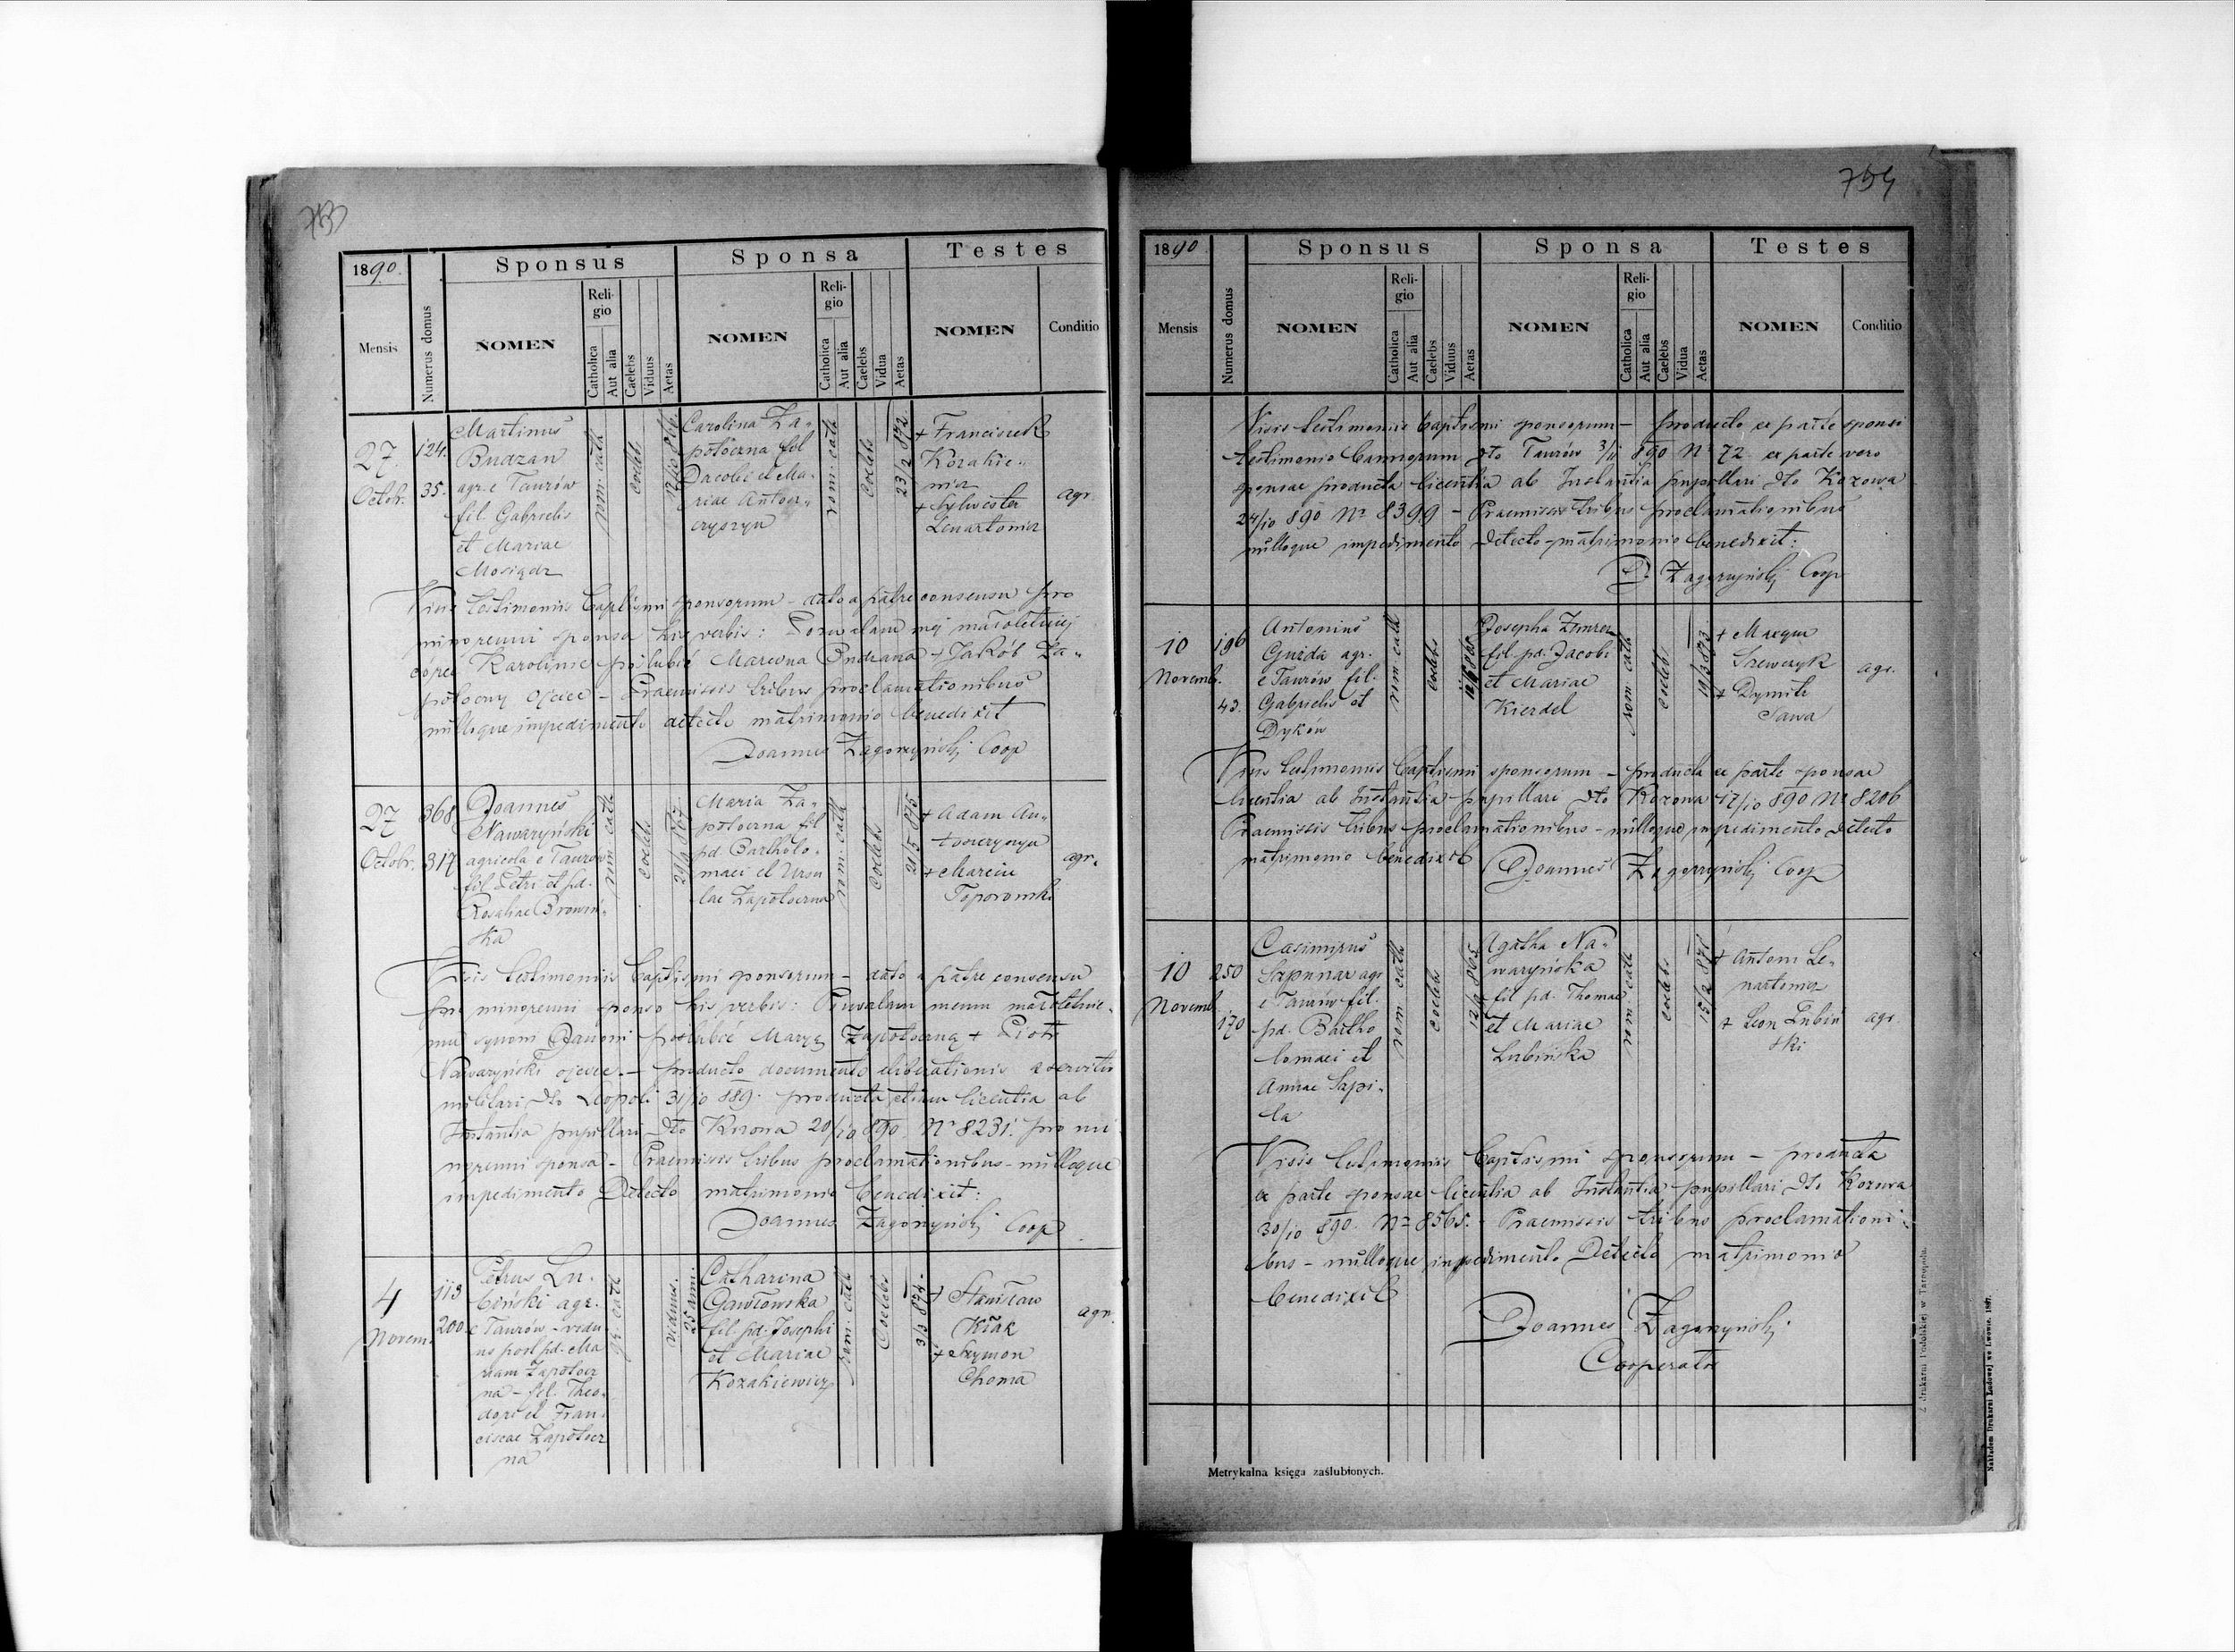 753
1890.
Mensis
Numerus domus
Sponsus
NOMEN
Religio
Catholica
Aut alia
Caelebs
Viduus
Aetas
Sponsa
NOMEN
Religio
Catholica
Aut alia
Caelebs
Vidua
Aetas
Testes
NOMEN
Conditio
27.
Octobr.
124.
35.
Martinus
Budzan
agr. e Taurów
fil. Gabrielis
et Mariae
Mosiądz
rom. cath
coelebs
Carolina Za„
potoczna fil
Jacobi et Ma„
riae Antosz„
czyszyn
rom. cath
coelebs
23/2 872
+ Franciszek
Kozakie„
wicz
+ Sylwester
Lenartowicz
agr.
Visis testimoniis baptismi sponsorum – dato a patre consensu pro
minorenni sponsa his verbis: Pozwalam mej małoletniej
córce Karolinie poślubić Marcina Budzana + Jakób Za„
potoczny ojciec – Praemissis tribus proclamationibus
nulloque impedimento detecto matrimonio benedixit
Joannes Zagorzyński Coop
27
Octobr.
368
317
Joannes
Nawaryński
agricola e Taurów
fil Petri et pd.
Rosaliae Browiń„
ska
rom cath
coelebs
29/1 867
Maria Za„
potoczna fil
pd Bartholo„
maei et Ursu
lae Zapotoczna
rom. cath
coelebs
21/5 875
+ Adam An„
toszczyszyn
+ Marcin
Toporowski
agr.
Visis testimoniis baptismi sponsorum – dato a patre consensu
pro minorenni sponso his verbis: Pozwalam memu małoletnie„
mu synowi Janowi poślubić Maryę Zapotoczną + Piotr
Nawaryński ojciec. – producto documento liberationis a servitio
militari dto Leopoli 31/10 889. producta etiam licentia ab
Instantia pupillari dto Kozowa 20/10 890 Nr 8231. pro mi
norenni sponsa – Praemissis tribus proclamationibus – nulloque
impedimento detecto matrimonio benedixit:
Joannes Zagorzyński Coop
4
Novem.
113
200.
Petrus Lu„
biński agr.
e Taurów – vidu
us post pd. Ma
riam Zapotocz
na – fil. Theo„
dori et Fran„
ciscae Zapotocz
na
gr. cath
viduus.
25 ann.
Catharina
Gawłowska
fil. pd. Josephi
et Mariae
Kozakiewicz
rom. cath
coelebs
3/3 874.
+ Stanisław
Kłak
+ Szymon
Choma
agr.
754
1890
Mensis
Numerus domus
Sponsus
NOMEN
Religio
Catholica
Aut alia
Caelebs
Viduus
Aetas
Sponsa
NOMEN
Religio
Catholica
Aut alia
Caelebs
Vidua
Aetas
Testes
NOMEN
Conditio
Visis testimoniis baptismi sponsorum – producto ex parte sponsi
testimonio bannorum dto Taurów 3/11 890 Nr 72 ex parte vero
sponsae producta licentia ab Instantia pupillari dto Kozowa
24/10 890 Nr 8399 – Praemissis tribus proclamationibus
nulloque impedimento detecto – matrimonio benedixit:
J. Zagorzyński Coop
10
Novemb.
196
43.
Antonius
Guzda agr.
e Taurów fil.
Gabrielis et
Dyków
rom cath
coelebs
Josepha Zmroz
fil. pd. Jacobi
et Mariae
Kierdel
rom cath
coelebs
19/3 873
+ Maxym
Szewczyk
+ Dymitr
Sawa
agr.
Visis testimoniis baptismi sponsorum – producta ex parte sponsae
licentia ab Instantia pupillari dto Kozowa 17/10 890 Nr 8206
Praemissis tribus proclamationibus – nulloque impedimento detecto
matrimonio benedixit Joannes Zagorzyński Coop
10
Novemb.
250
170
Casimirus
Szpunar agr
e Taurów fil.
pd. Bartho
lomaei et
Annae Szpi„
la
rom cath
coelebs
12/9 865
Agatha Na„
waryńska
fil pd. Thomae
et Mariae
Lubińska
rom cath
coelebs
15/2 871
+ Antoni Le„
nartowicz
+ Leon Lubiń
ski
agr.
Visis testimoniis baptismi sponsorum – producta
ex parte sponsae licentia ab Instantia pupillari dto Kozowa
30/10 890. Nr 8565. – Praemissis tribus proclamationi„
bus – nulloque impedimento detecto matrimonio
benedixit
Joannes Zagorzyński
Cooperator
Metrykalna księga zaślubionych.
Z drukarni Podolskiej w Tarnopolu.
Nakładem Drukarni Ludowej we Lwowie. 1887.